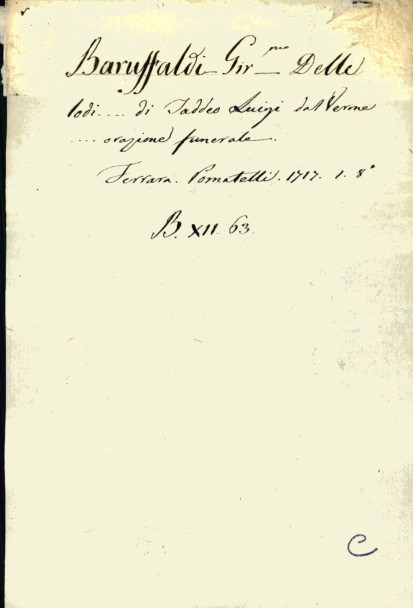 Baruffaldi Gir.mo Delle
lodi.... di Taddeo Luigi dal Verme
.... orazione funerale.
Ferrara. Pomatelli. 1717. 1. 8°
B. XII. 63.
C